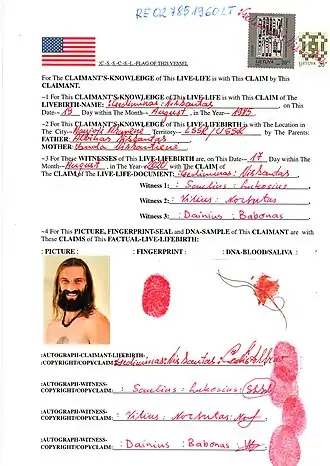 RE 02 785 1960 LT
LIETUVA
LIETUVA
:C.-S.-S.-C.-S.-L.-FLAG OF THIS VESSEL
For The CLAIMANT'S-KNOWLEDGE of This LIVE-LIFE is with This CLAIM by This
CLAIMANT.
~1 For This CLAIMANT'S-KNOWLEDGE of This LIVEBIRTH is with This CLAIM of The
LIVEBIRTH-NAME: , on This
Date-- Day within The Month-- August , in The Year-- 1985
~2 For This CLAIMANT'S-KNOWLEDGE of This LIVEBIRTH is with The Location in
The City-- Naujoji Akmenė Territory-- by The Parents:
FATHER:
MOTHER:
~3 For These WITNESSES of This LIVEBIRTH are, on This Date-- 17 Day within The
Month-- August , in The Year-- 2020 with The CLAIM of
The CLAIM of The LIVE-LIFE-DOCUMENT:
Witness 1: : Saulius : Lukosius
Witness 2: : Vilius : Norbutas
Witness 3: : Dainius : Babonas
~4 For This PICTURE, FINGERPRINT-SEAL and DNA-SAMPLE of This CLAIMANT are with
These CLAIMS of This FACTUAL-LIVE-LIFEBIRTH:
: PICTURE : : FINGERPRINT : : DNA-BLOOD/SALIVA :
:AUTOGRAPH-CLAIMANT-LIFEBIRTH:
:COPYRIGHT/COPYCLAIM:
:AUTOGRAPH-WITNESS-
COPYRIGHT/COPYCLAIM: : Saulius : Lukosius :
:AUTOGRAPH-WITNESS-
COPYRIGHT/COPYCLAIM: : Vilius : Norbutas :
:AUTOGRAPH-WITNESS-
COPYRIGHT/COPYCLAIM: : Dainius : Babonas :